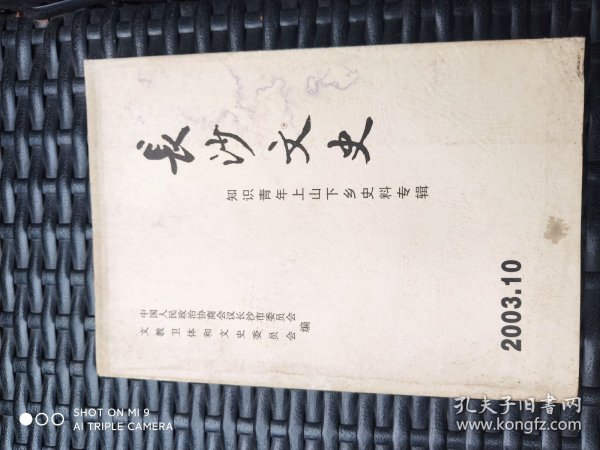 長沙文史
知识青年上山下乡史料专辑
中国人民政治协商会议长沙市委员会
文教卫体和文史委员会编
2003.10
SHOT ON MI 9
AI TRIPLE CAMERA
孔夫子旧书网
www.kongfz.com